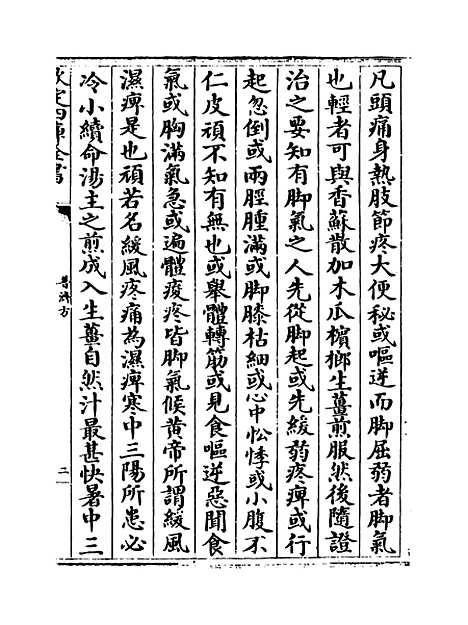 凡頭痛身熱肢節疼大便秘或嘔逆而脚屈弱者脚氣
也輕者可與香蘇散加木瓜檳榔生薑煎服然後隨證
治之要知有脚氣之人先從脚起或先緩弱疼痺或行
起忽倒或兩脛腫滿或脚膝枯細或心中忪悸或小腹不
仁皮頑不知有無也或舉體轉筋或見食嘔逆惡聞食
氣或胸滿氣急或遍體痠疼皆脚氣候黄帝所謂緩風
濕痺是也頑若名緩風疼痛為濕痺寒中三陽所患必
冷小續命湯主之煎成入生薑自然汁最甚快暑中三
欽定四庫全書
普濟方
二